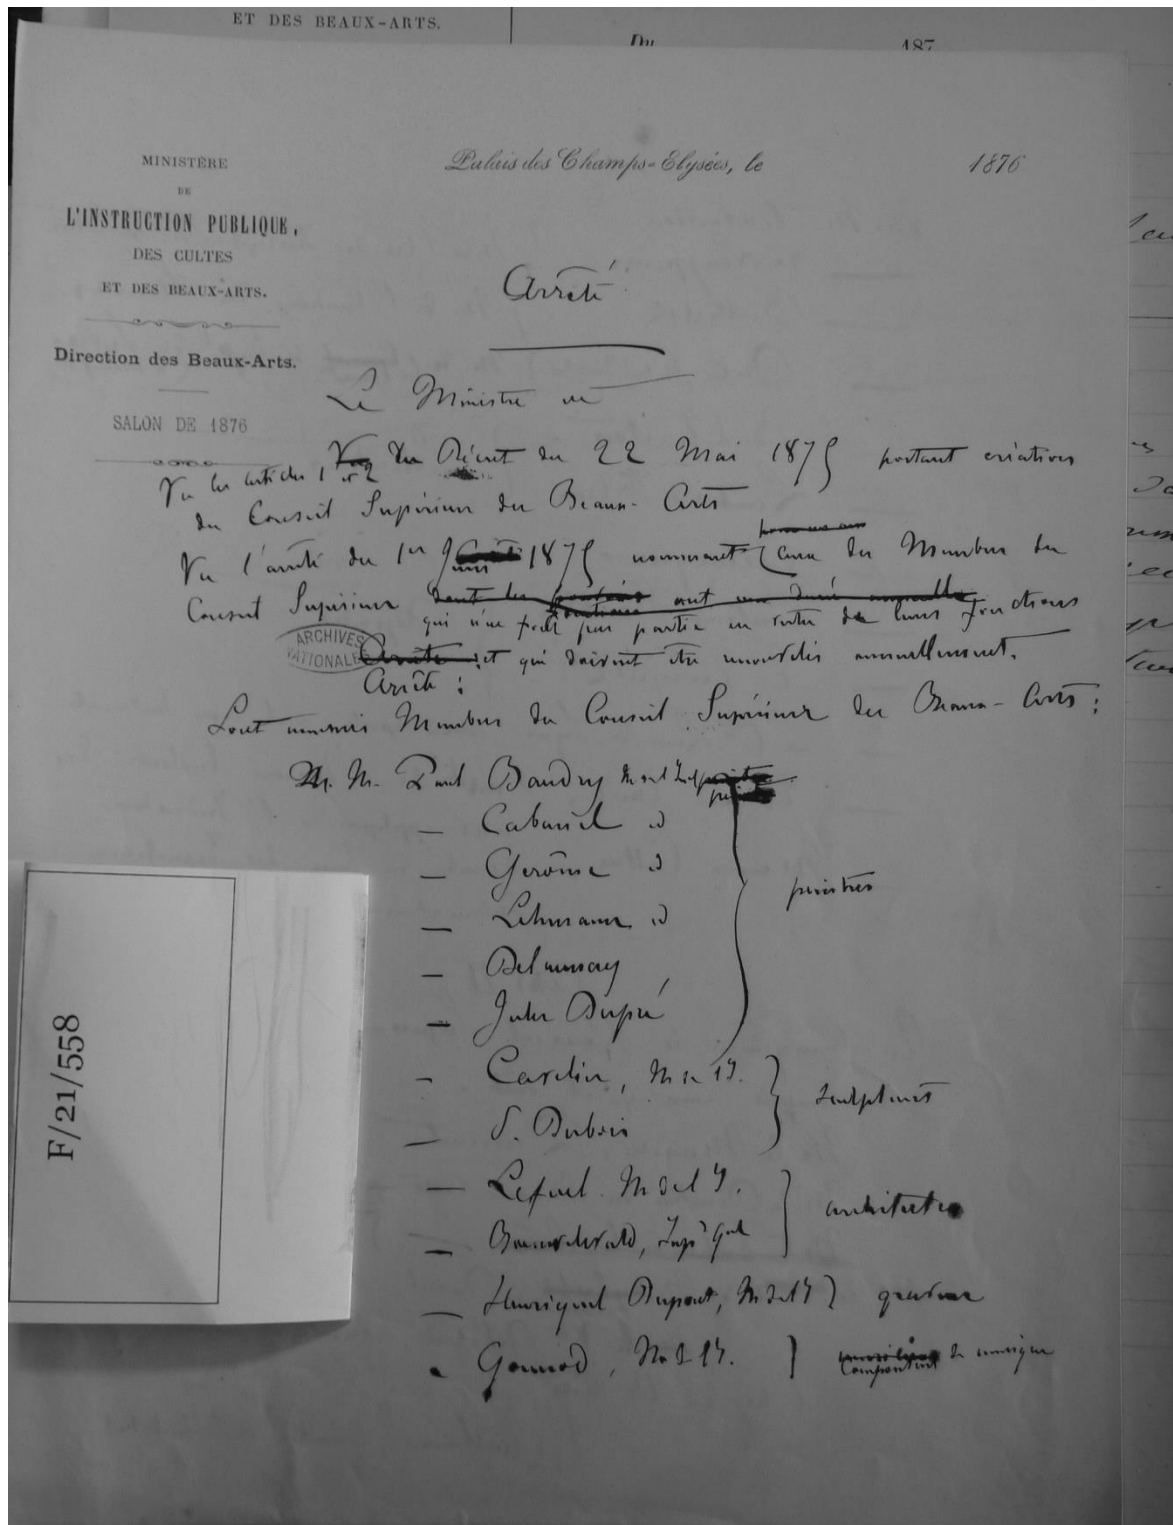 ET DES BEAUX-ARTS.
Du 187
MINISTÈRE
DE
L'INSTRUCTION PUBLIQUE,
DES CULTES
ET DES BEAUX-ARTS.
Direction des Beaux-Arts.
SALON DE 1876
Palais des Champs-Elysées, le 1876
Arrêté
Le Ministre
Vu les articles 1 et 2 du Décret du 22 Mai 1875 portant création
du Conseil Supérieur des Beaux-Arts
Vu l'arrêté du 1er Juin 1875 nommant ceux des Membres du
Conseil Supérieur
qui n'en font pas partie en vertu de leurs fonctions
et qui doivent être renouvelés annuellement.
ARCHIVES
NATIONALES
Arrête :
Sont nommés Membres du Conseil Supérieur des Beaux-Arts :
M. M. Paul Baudry
— Cabanel id
— Gerôme id
— Lehmann id
— Delaunay
— Jules Dupré
peintres
— Cavelier, M de l'I.
— P. Dubois
sculpteurs
— Lefuel. M de l'I.
— Boeswilwald, Insp Gal
architectes
— Henriquel Dupont, M de l'I } graveur
— Gounod, M de l'I. } compositeur de musique
F/21/558